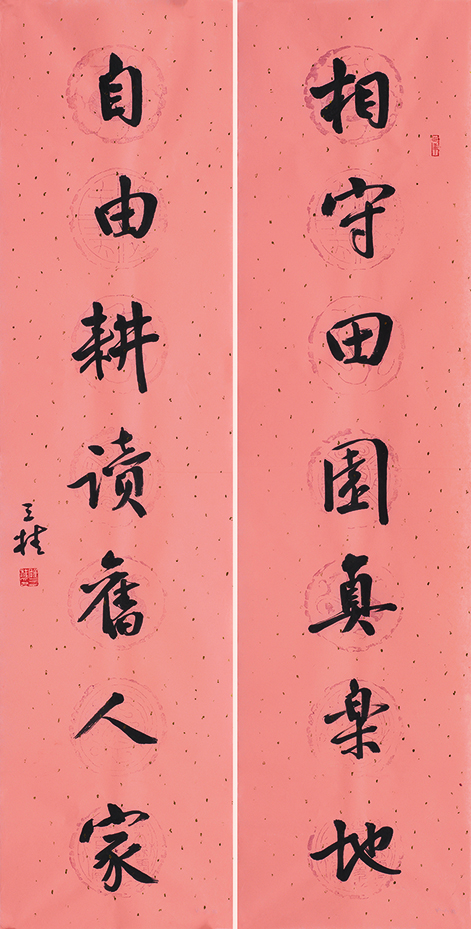 相守田園真楽地
自由耕读舊人家